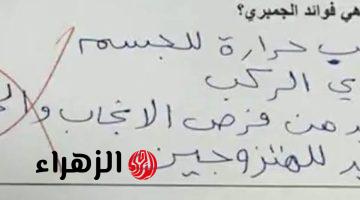 هي فوائد الجمبري؟
ب حرارة للجسم
ي الركب
يد من فرص الانجاب وال
يد للمتزوجين
الزهراء